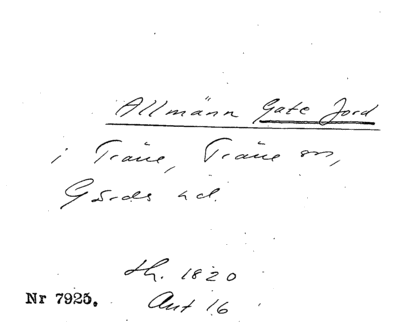 Allmänn Gate Jord
i Träne, Träne sn,
Gärds hd.
th. 1820
Nr 7925. Aut 16